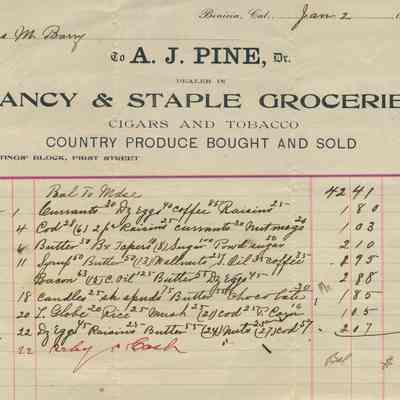 Benicia, Cal., Jan 2
s M. Barry
To A. J. PINE, Dr.
DEALER IN
ANCY & STAPLE GROCERIE
CIGARS AND TOBACCO
COUNTRY PRODUCE BOUGHT AND SOLD
TINGS' BLOCK, FIRST STREET
Bal To Mdse 42 41
1 Currants 20 Dz Eggs 40 Coffee 95 Raisins 25 1 80
4 Cod 28 (6) 2 pk Raisins 25 currants 20 Nutmegs 20 1 03
6 Butter 50 Bx Tapers (8) Sugar 100 Powd sugar 50 2 10
11 Soup 50 Butter 50 (13) Wallnuts 25 S. Oil 35 coffee 25 2 95
Bacon 63 (15) C. Oil 25 Butter 55 Dz Eggs 45 2 88
18 candles 25 sk spuds Butter 55 Chocolate 20 1 85
20 L. Globe 20 Rice 25 Mush 25 (21) cod 25 Corn 10 1 05
22 Dz Eggs 45 Raisins 25 Butter 55 (24) Nuts 25 (27) cod 57 2 07
22 By Cash "
Bal $